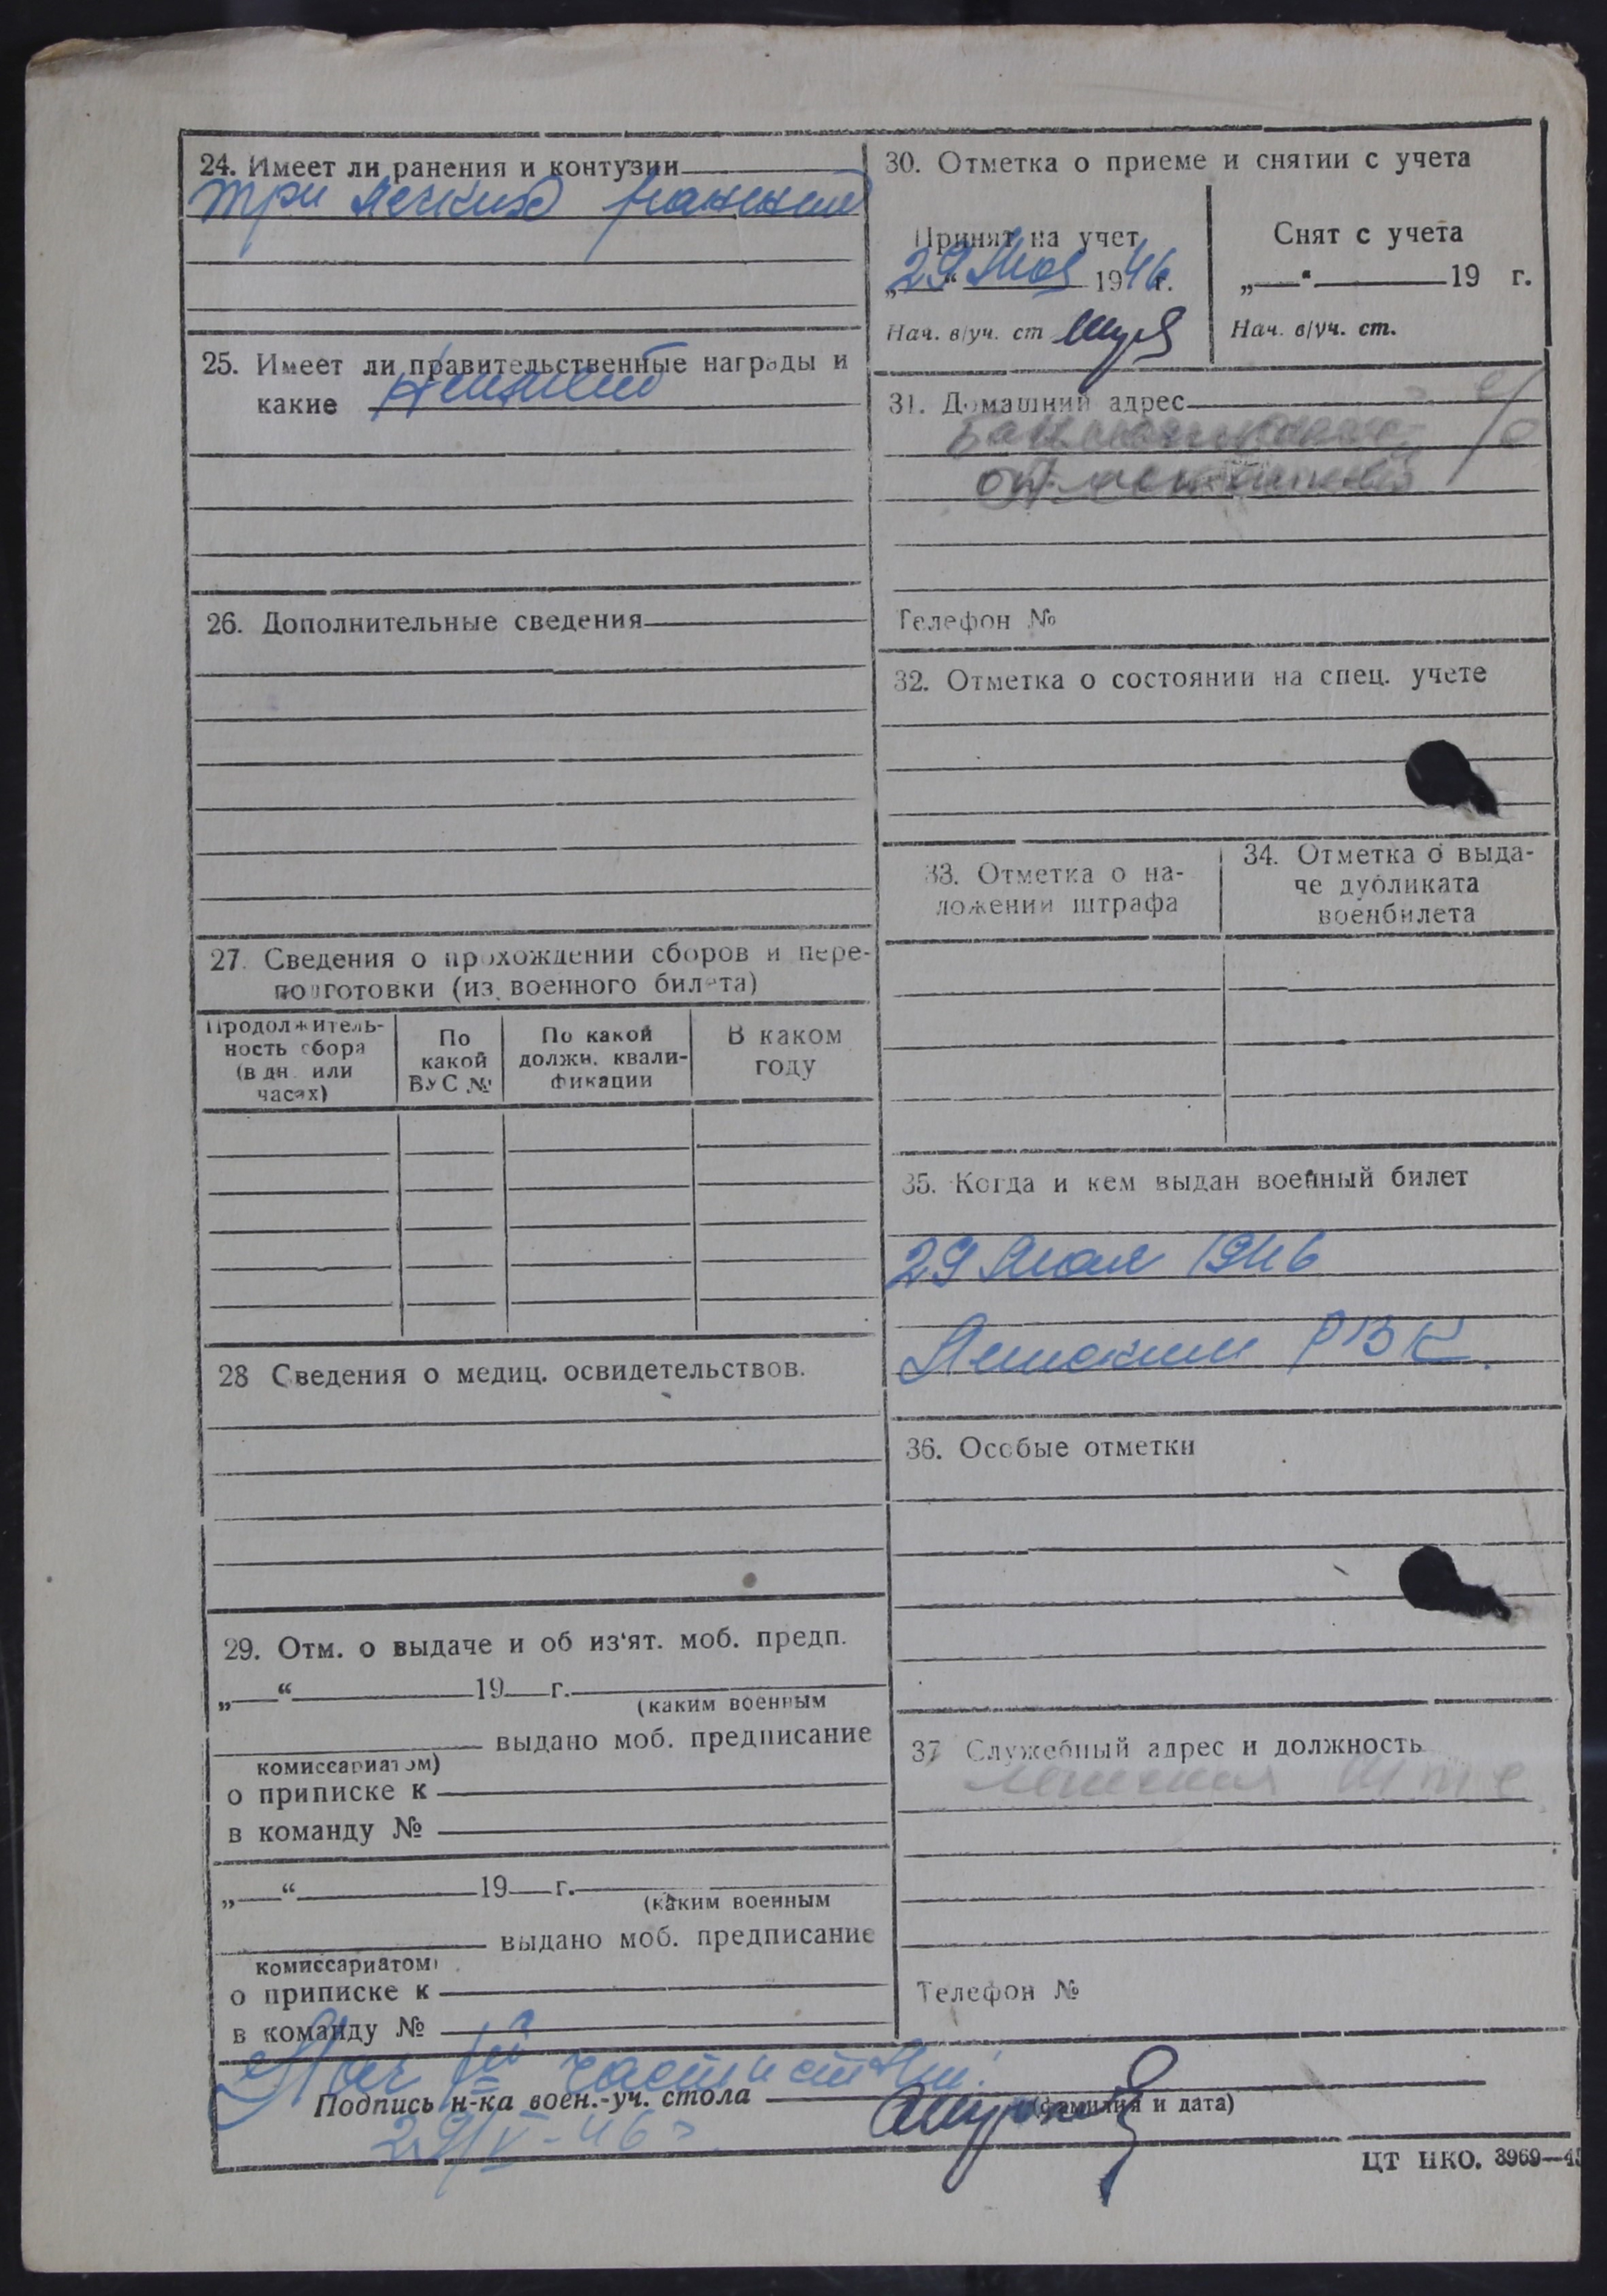 24. Имеет ли ранения и контузии
три легких ранений
25. Имеет ли правительственные награды и
какие
26. Дополнительные сведения
27. Сведения о прохождении сборов и пере-
подготовки (из военного билета)
Продолжитель-
ность сбора
(в дн. или
часах)
По
какой
ВУС №
По какой
должн. квали-
фикации
В каком
году
28 Сведения о медиц. освидетельствов.
29. Отм. о выдаче и об из‘ят. моб. предп.
„ “ 19 г.
(каким военным
выдано моб. предписание
комиссариатом)
о приписке к
в команду №
„ “ 19 г.
(каким военным
выдано моб. предписание
комиссариатом)
о приписке к
в команду №
30. Отметка о приеме и снятии с учета
Принят на учет
„29“ Мая 1946 г.
Нач. в/уч. ст
Снят с учета
„ “ 19 г.
Нач. в/уч. ст.
31. Домашний адрес
с/с
Телефон №
32. Отметка о состоянии на спец. учете
33. Отметка о на-
ложении штрафа
34. Отметка о выда-
че дубликата
военбилета
35. Когда и кем выдан военный билет
29 Мая 1946
РВК.
36. Особые отметки
37 Служебный адрес и должность
Телефон №
Нач части
Подпись н-ка воен.-уч. стола
(фамилия и дата)
29/V-46 г.
ЦТ НКО. 3969—45